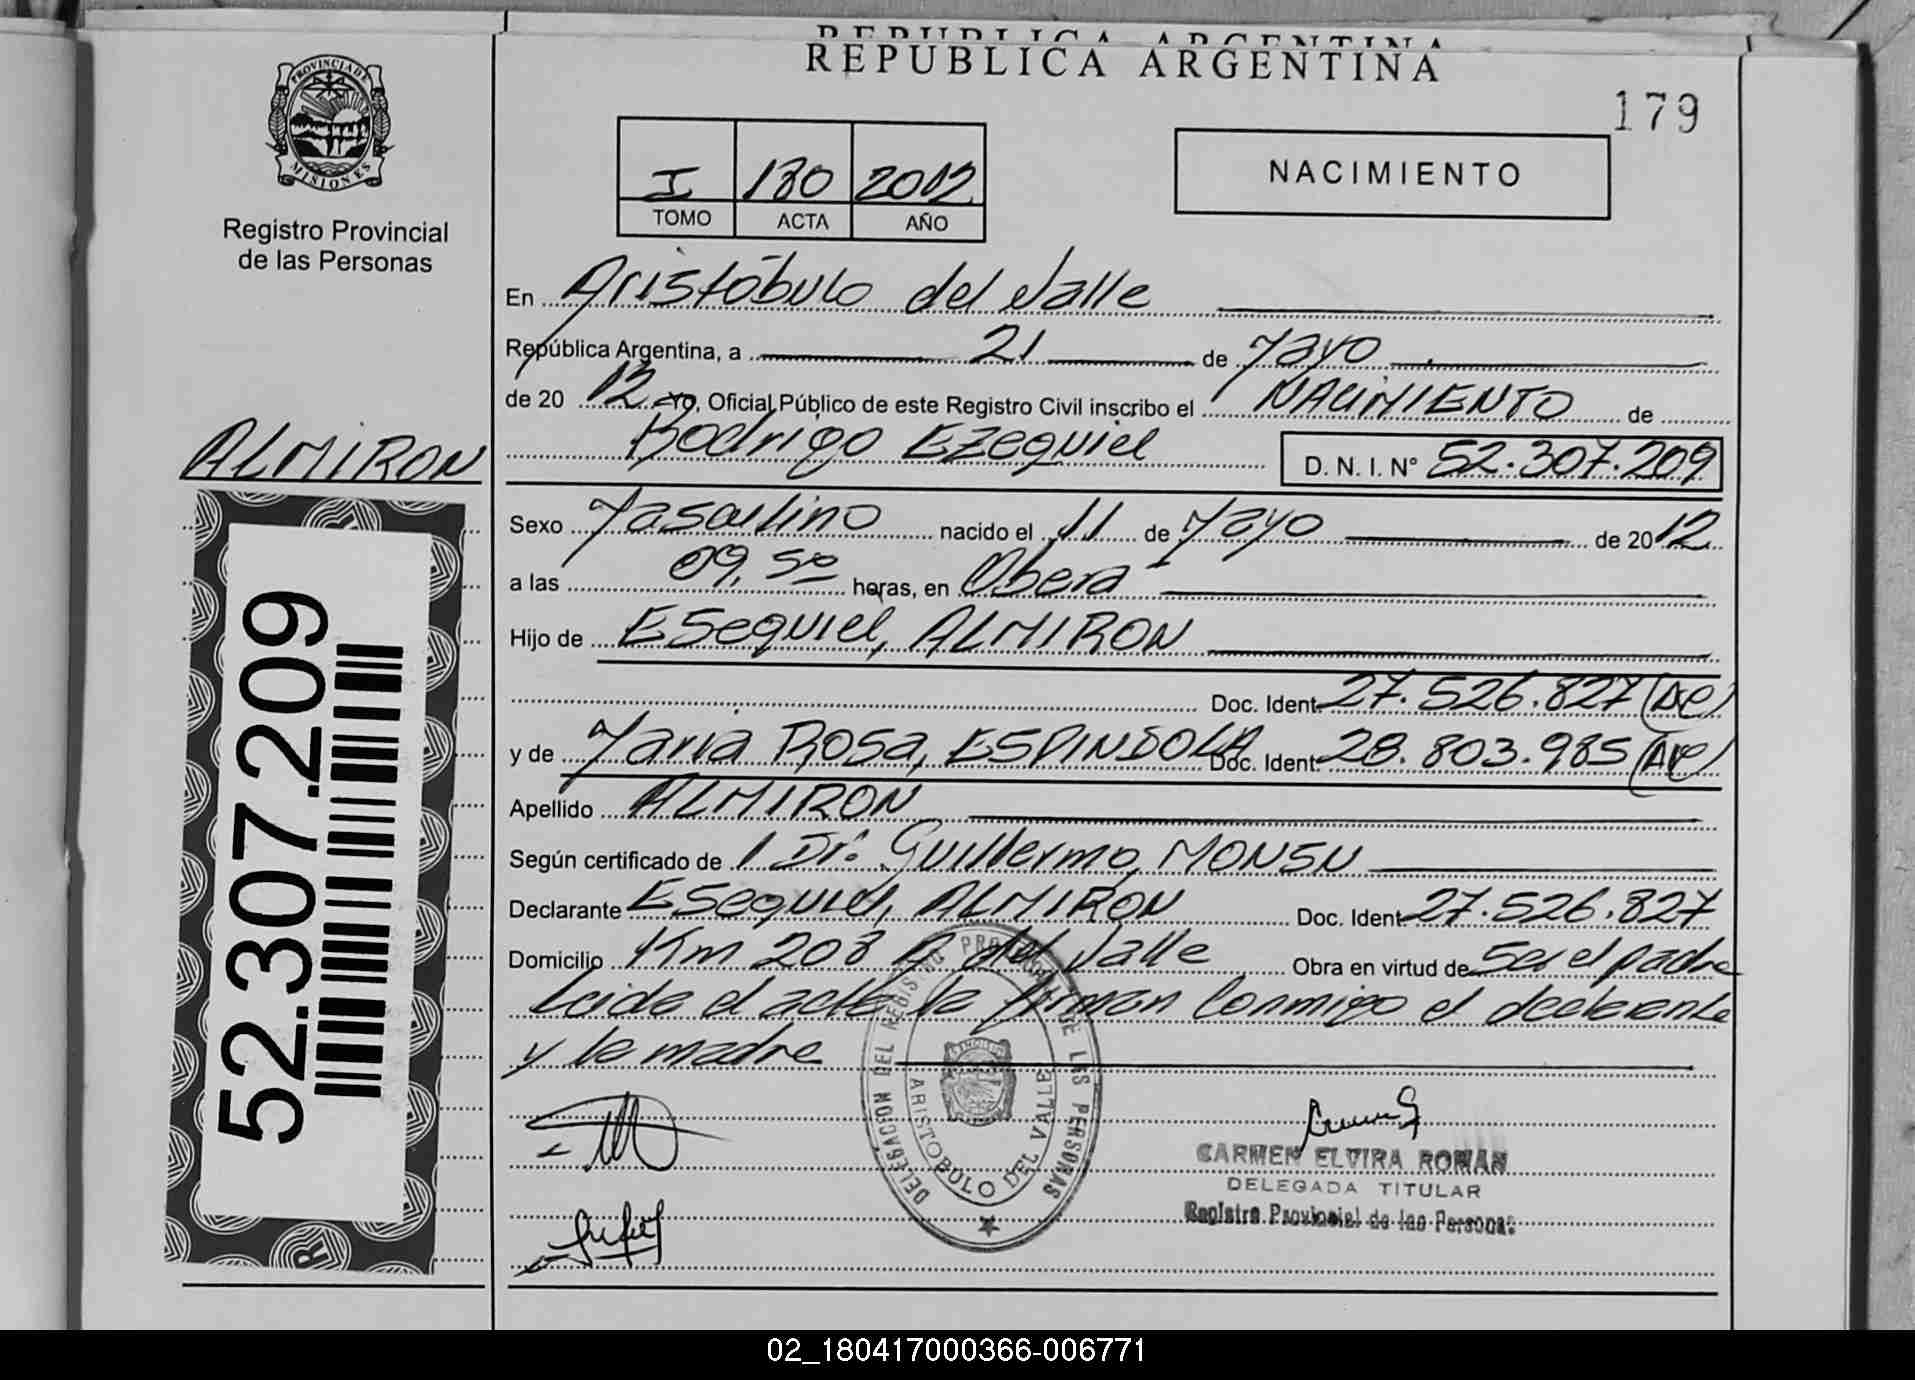 REPUBLICA ARGENTINA
REPUBLICA ARGENTINA
179
PROVINCIA DE MISIONES
Registro Provincial
de las Personas
I 180 2012
TOMO ACTA AÑO
NACIMIENTO
En Aristóbulo del Valle
República Argentina, a 21 de Mayo
de 20 12 Yo, Oficial Público de este Registro Civil inscribo el NACIMIENTO de
Rodrigo Ezequiel D. N. I. Nº 52.307.209
ALMIRON
Sexo Masculino nacido el 11 de Mayo de 2012
a las 09,50 horas, en Obera
Hijo de Esequiel, ALMIRON
Doc. Ident. 27.526.827
y de Maria Rosa, ESPINDOLA Doc. Ident. 28.803.985
Apellido ALMIRON
Según certificado de Dr. Guillermo, MONSU
Declarante Esequiel, ALMIRON Doc. Ident. 27.526.827
Domicilio Km 208 A del Valle Obra en virtud de Ser el padre
Leida el acta la firman conmigo el declarante
y la madre
52.307.209
DELEGACION DEL REGISTRO PROVINCIAL DE LAS PERSONAS
ARISTOBULO DEL VALLE
CARMEN ELVIRA ROMAN
DELEGADA TITULAR
Registro Provincial de las Personas
02_180417000366-006771